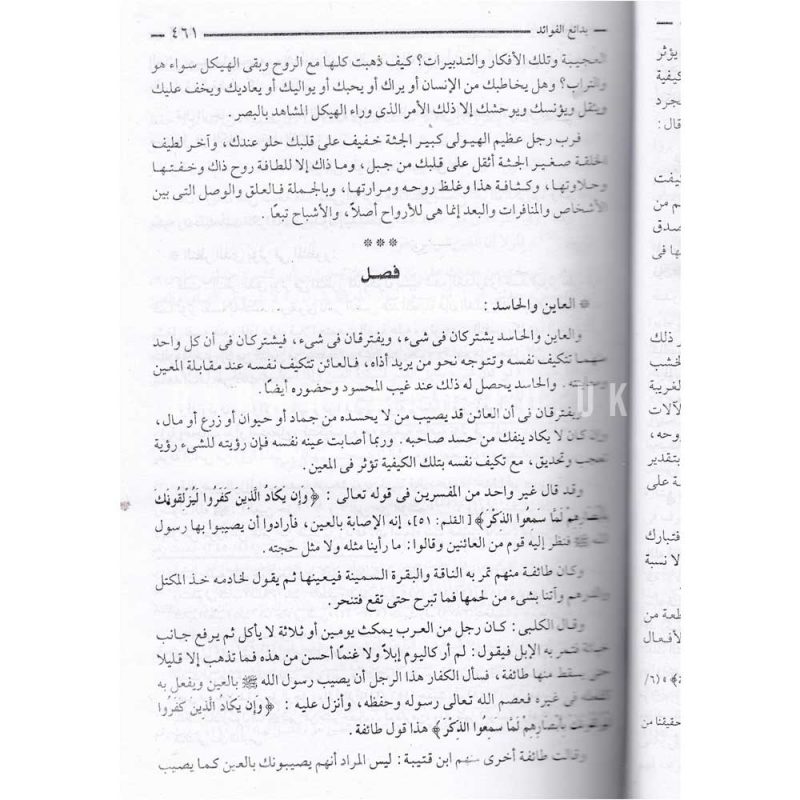 بدائع الفوائد
٤٦١
العجيبة وتلك الأفكار والتدبيرات؟ كيف ذهبت كلها مع الروح وبقى الهيكل سواء هو
والتراب؟ وهل يخاطبك من الإنسان أو يراك أو يحبك أو يواليك أو يعاديك ويخف عليك
ويثقل ويؤنسك ويوحشك إلا ذلك الأمر الذى وراء الهيكل المشاهد بالبصر.
فرب رجل عظيم الهيولى كبير الجثة خفيف على قلبك حلو عندك، وآخر لطيف
الخلقة صغير الجثة أثقل على قلبك من جبل، وما ذاك إلا للطافة روح ذاك وخفتها
وحلاوتها، وكثافة هذا وغلظ روحه ومرارتها، وبالجملة فالعلق والوصل التى بين
الأشخاص والمنافرات والبعد إنما هى للأرواح أصلاً، والأشباح تبعًا.
***
فصل
* العاين والحاسد :
والعاين والحاسد يشتركان فى شىء، ويفترقان فى شىء، فيشتركان فى أن كل واحد
منهما تتكيف نفسه وتتوجه نحو من يريد أذاه، فالعائن تتكيف نفسه عند مقابلة المعين
ومعاينته. والحاسد يحصل له ذلك عند غيب المحسود وحضوره أيضًا.
ويفترقان فى أن العائن قد يصيب من لا يحسده من جماد أو حيوان أو زرع أو مال،
وإن كان لا يكاد ينفك من حسد صاحبه. وربما أصابت عينه نفسه فإن رؤيته للشىء رؤية
تعجب وتحديق، مع تكيف نفسه بتلك الكيفية تؤثر فى المعين.
وقد قال غير واحد من المفسرين فى قوله تعالى: ﴿وَإِن يَكَادُ الَّذِينَ كَفَرُوا لَيُزْلِقُونَكَ
بِأَبْصَارِهِمْ لَمَّا سَمِعُوا الذِّكْرَ﴾ [القلم: ٥١]، إنه الإصابة بالعين، فأرادوا أن يصيبوا بها رسول
الله ﷺ فنظر إليه قوم من العائنين وقالوا: ما رأينا مثله ولا مثل حجته.
وكان طائفة منهم تمر به الناقة والبقرة السمينة فيعينها ثم يقول لخادمه خذ المكتل
والدرهم وآتنا بشىء من لحمها فما تبرح حتى تقع فتنحر.
وقال الكلبى: كان رجل من العرب يمكث يومين أو ثلاثة لا يأكل ثم يرفع جانب
خبائه فتمر به الإبل فيقول: لم أر كاليوم إبلاً ولا غنمًا أحسن من هذه فما تذهب إلا قليلا
حتى يسقط منها طائفة، فسأل الكفار هذا الرجل أن يصيب رسول الله ﷺ بالعين ويفعل به
كفعله فى غيره فعصم الله تعالى رسوله وحفظه، وأنزل عليه: ﴿وَإِن يَكَادُ الَّذِينَ كَفَرُوا
لَيُزْلِقُونَكَ بِأَبْصَارِهِمْ لَمَّا سَمِعُوا الذِّكْرَ﴾ هذا قول طائفة.
وقالت طائفة أخرى منهم ابن قتيبة: ليس المراد أنهم يصيبونك بالعين كما يصيب